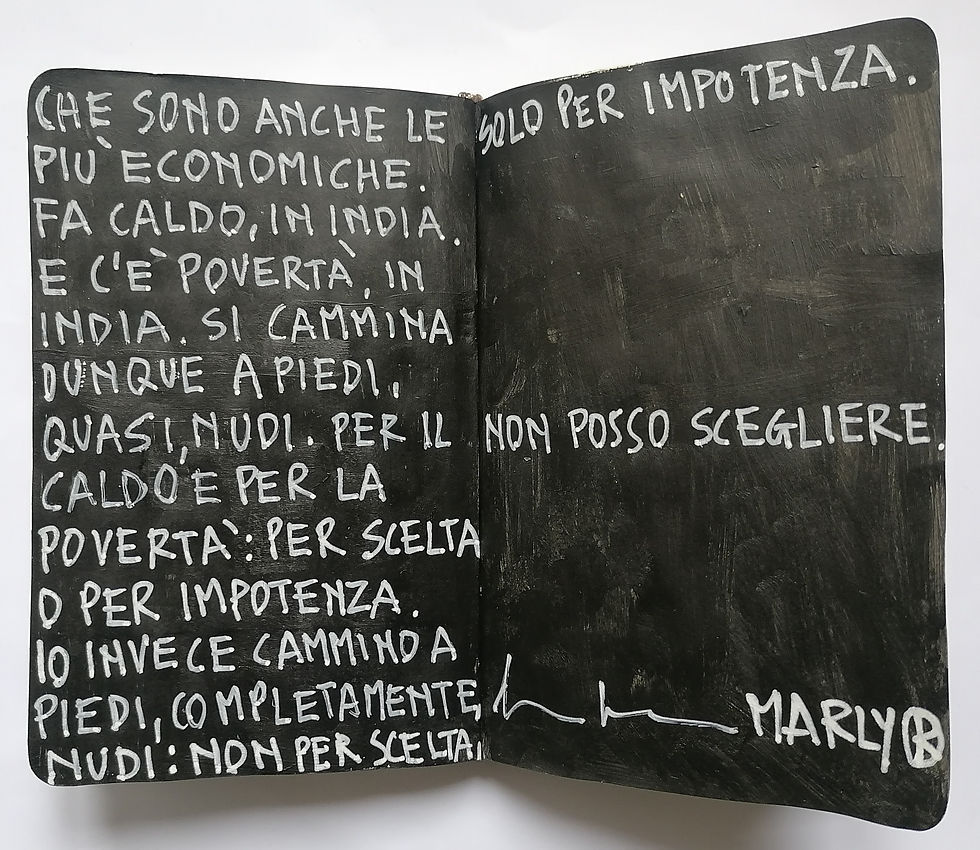 CHE SONO ANCHE LE
PIÙ ECONOMICHE.
FA CALDO, IN INDIA.
E C'È POVERTÀ, IN
INDIA. SI CAMMINA
DUNQUE A PIEDI,
QUASI, NUDI. PER IL
CALDO E PER LA
POVERTÀ: PER SCELTA
O PER IMPOTENZA.
IO INVECE CAMMINO A
PIEDI, COMPLETAMENTE,
NUDI: NON PER SCELTA,
SOLO PER IMPOTENZA.
NON POSSO SCEGLIERE.
MARLY ®